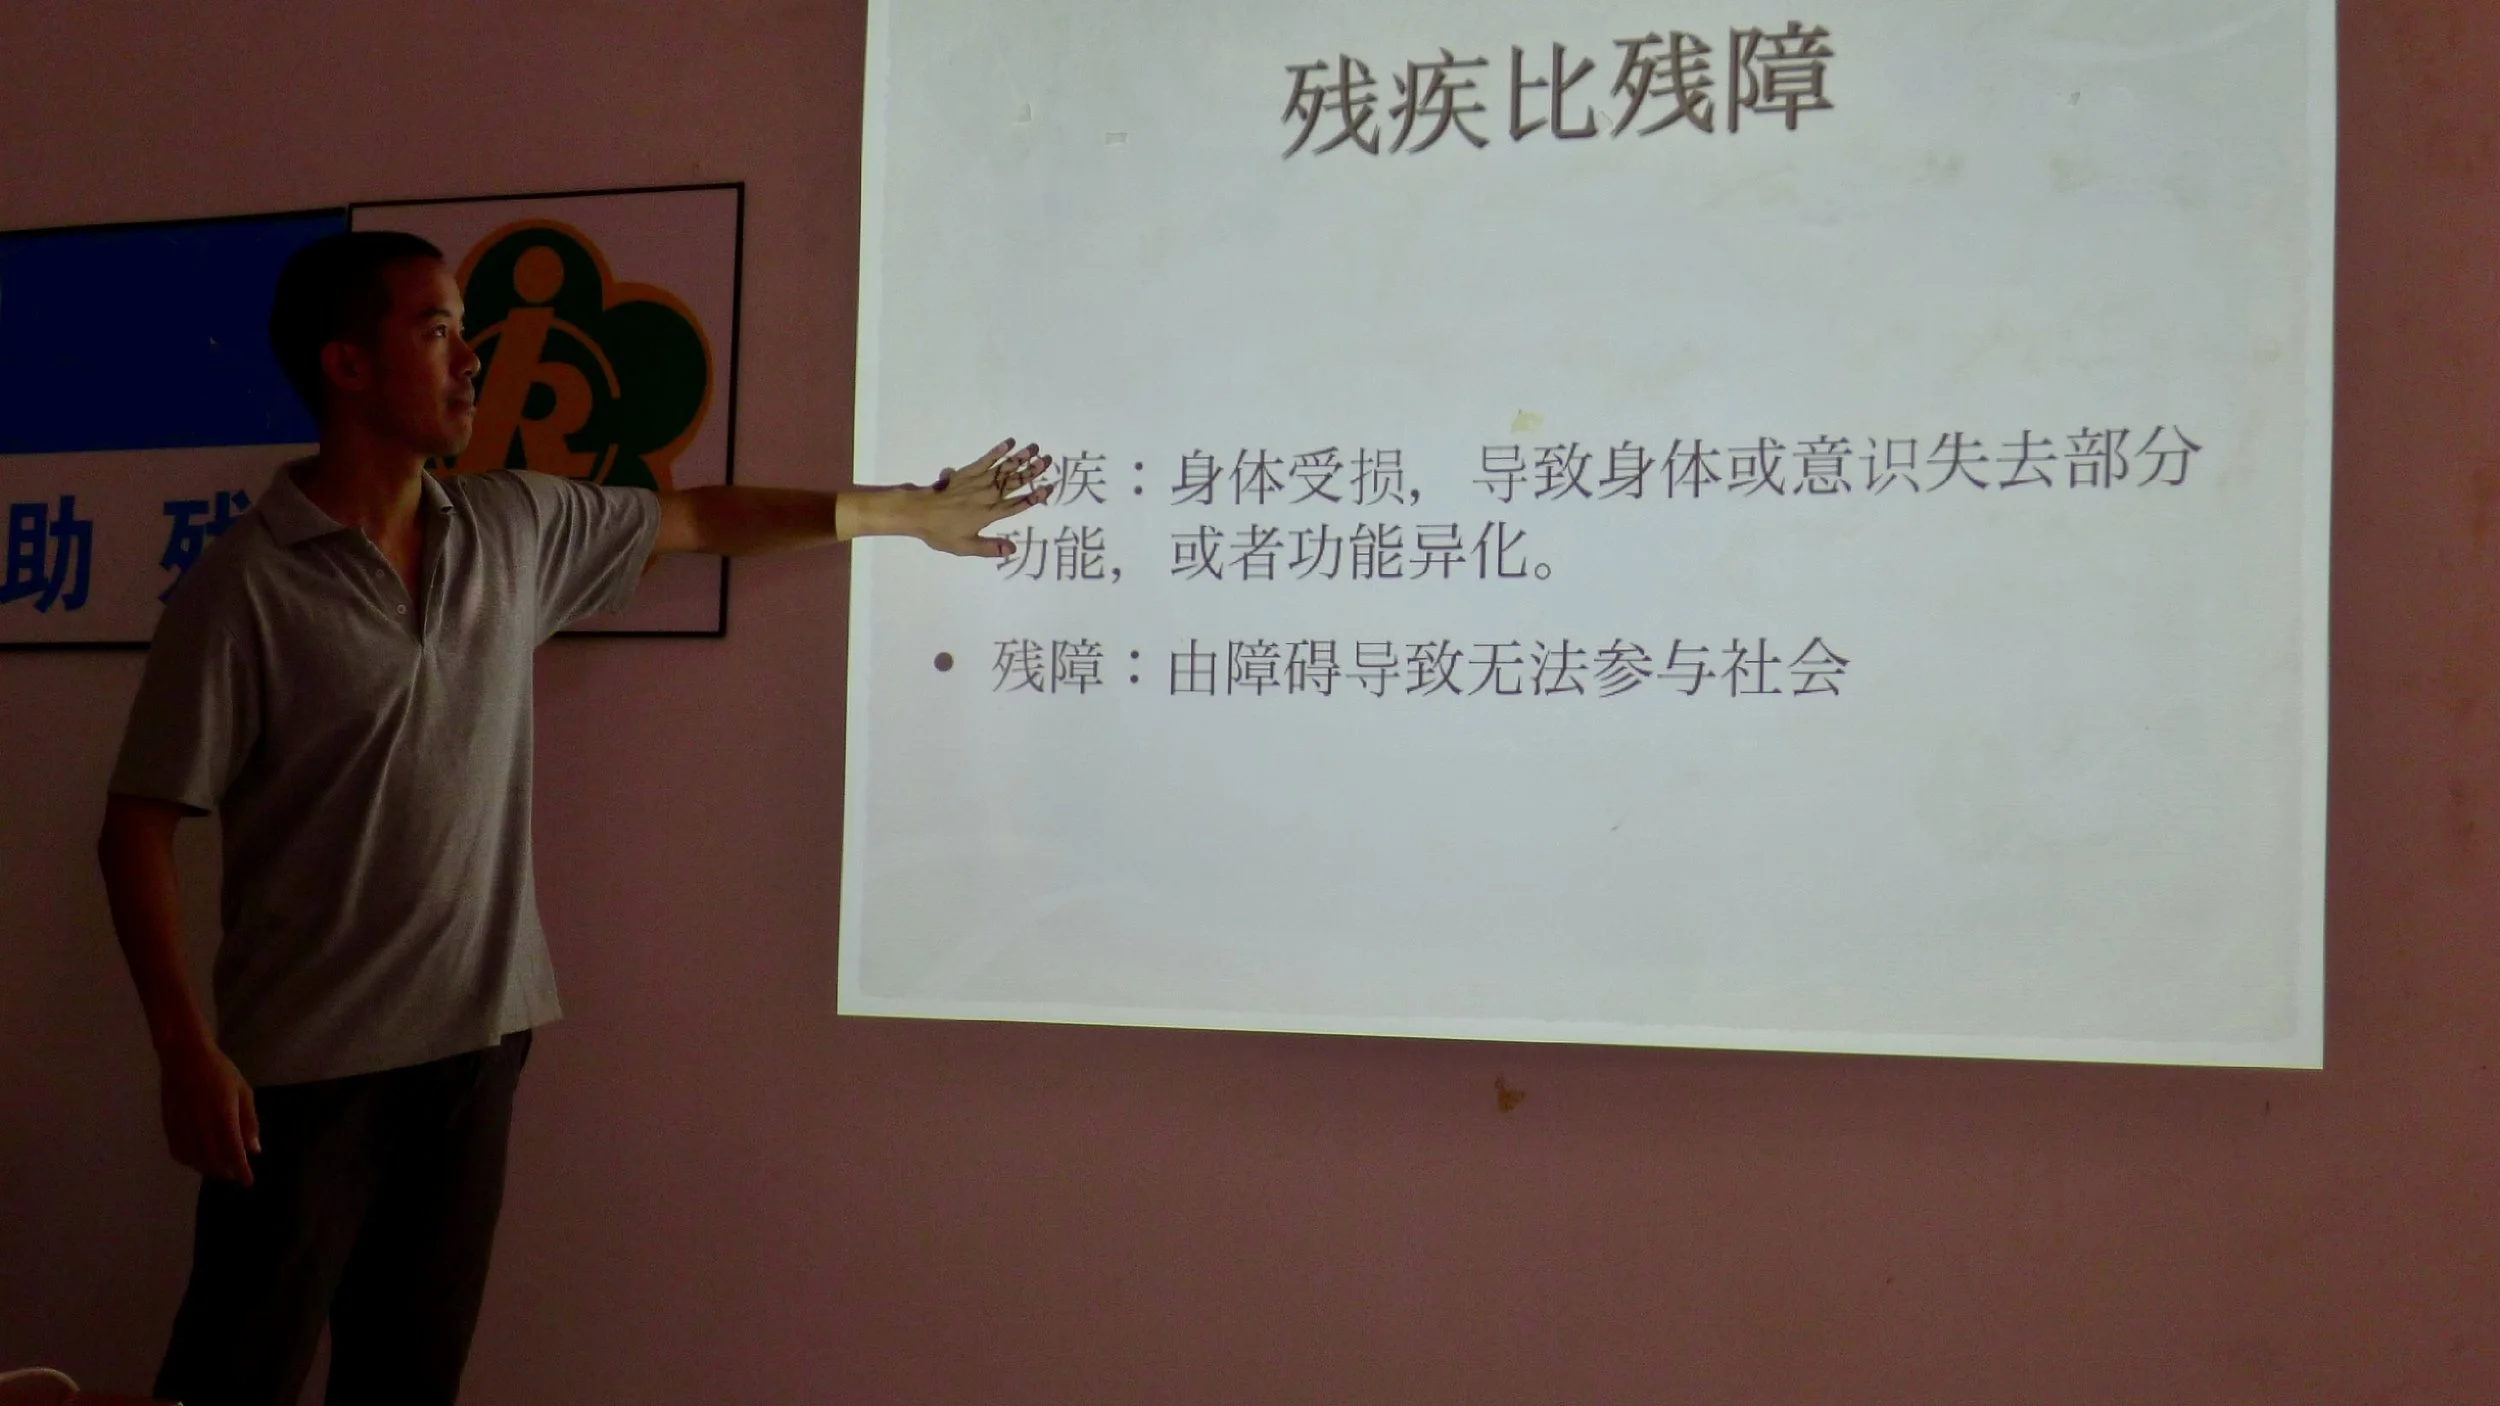 残疾比残障
残疾：身体受损，导致身体或意识失去部分
功能，或者功能异化。
• 残障：由障碍导致无法参与社会
助 残